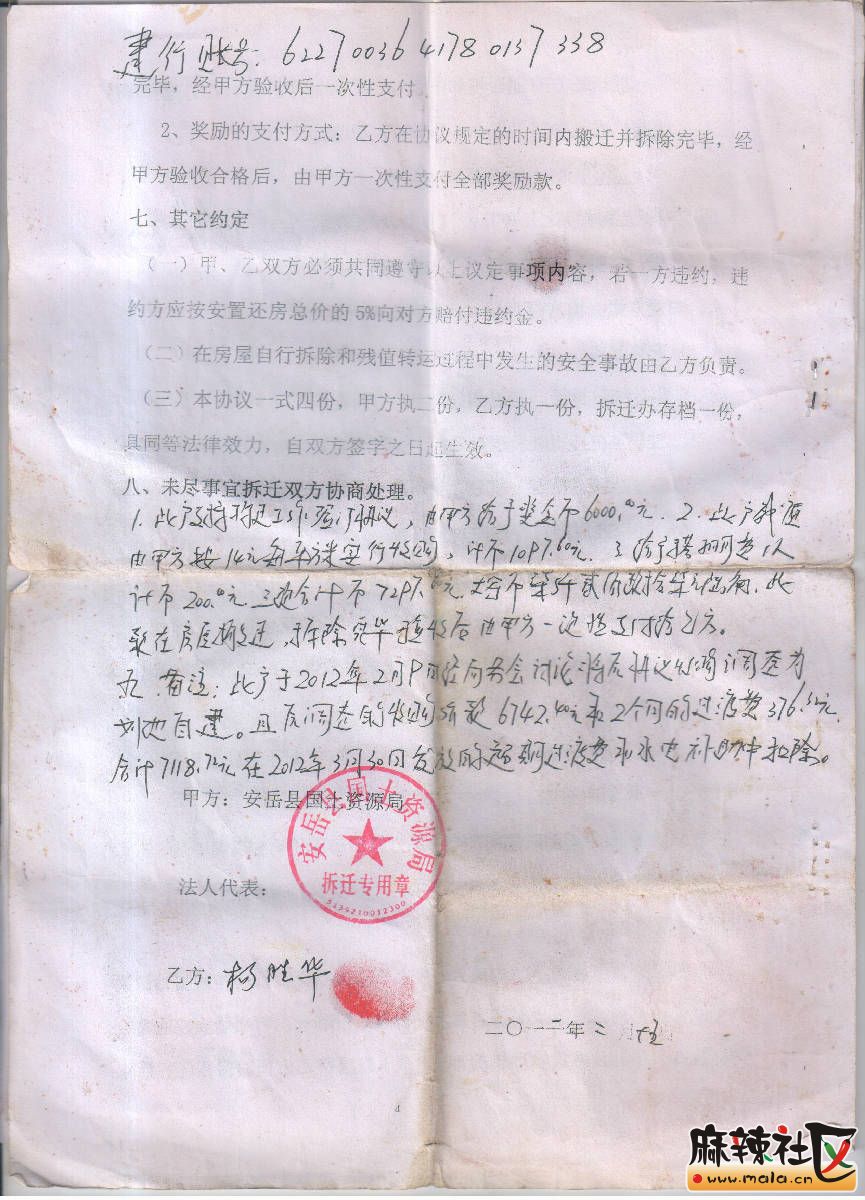 建行账号：6227003641780137338
完毕，经甲方验收后一次性支付。
2、奖励的支付方式：乙方在协议规定的时间内搬迁并拆除完毕，经
甲方验收合格后，由甲方一次性支付全部奖励款。
七、其它约定
（一）甲、乙双方必须共同遵守以上议定事项内容，若一方违约，违
约方应按安置还房总价的5%向对方赔付违约金。
（二）在房屋自行拆除和残值转运过程中发生的安全事故由乙方负责。
（三）本协议一式四份，甲方执二份，乙方执一份，拆迁办存档一份，
具同等法律效力，自双方签字之日起生效。
八、未尽事宜拆迁双方协商处理。
1. 此户支持拆迁工作签订协议，由甲方给予奖金币6000.00元. 2. 此户
由甲方按14元每平方米实行收购，计币1097.60元. 3. 给予搭棚费
计币200.00元 三项合计币7297.60元 此
款在房屋搬迁，拆除完毕验收后由甲方一次性支付给乙方。
备注：此户于2012年2月 经局务会讨论将原协议 调查为
划地自建。且原调查的 款6742.40元和2个月的过渡费376.32元
合计7118.72元在2012年3月30日发放的超期过渡费和水电补助中扣除。
甲方：安岳县国土资源局
安岳县国土资源局
拆迁专用章
5134210012300
法人代表：
乙方：杨胜华
二〇一二年二月十五
4
麻辣社区
www.mala.cn